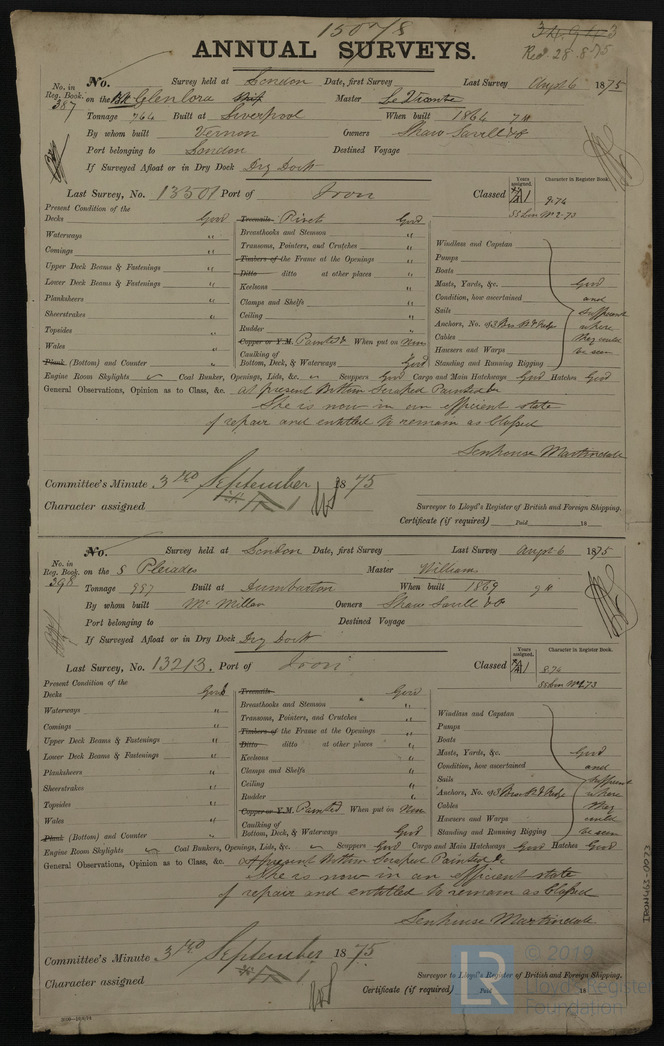 15078
Red 28.8.75
ANNUAL SURVEYS.
No. in Reg. Book. No. Survey held at London Date, first Survey Last Survey Augst 6 1875
387 on the Bk Glenlora Ship Master Le Vicomte
Tonnage 764 Built at Liverpool When built 1864 7 M
By whom built Vernon Owners Shaw Savill & Co
Port belonging to London Destined Voyage
If Surveyed Afloat or in Dry Dock Dry Dock
Last Survey, No. 13501 Port of Iron Classed Years assigned. A1 Character in Register Book. 9.74
SS Lon No 2-73
Present Condition of the
Decks Good Treenails Rivets Good
Waterways " Breasthooks and Stemson "
Comings " Transoms, Pointers, and Crutches " Windlass and Capstan
Upper Deck Beams & Fastenings " Timbers of the Frame at the Openings " Pumps
Lower Deck Beams & Fastenings " Ditto ditto at other places " Boats
Planksheers " Keelsons " Masts, Yards, &c. Good
Sheerstrakes " Clamps and Shelfs " Condition, how ascertained and
Topsides " Ceiling " Sails sufficient
Wales " Rudder " Anchors, No. of where
Plank (Bottom) and Counter " Copper or Y.M. Painted When put on New Cables they could
Caulking of Bottom, Deck, & Waterways Good Hawsers and Warps be seen
Standing and Running Rigging
Engine Room Skylights Coal Bunker, Openings, Lids, &c. Scuppers Good Cargo and Main Hatchways Good Hatches Good
General Observations, Opinion as to Class, &c. at present Bottom Scraped Painted &c
She is now in an efficient state
of repair and entitled to remain as Classed
Senhouse Martindale
Committee's Minute 3rd September 1875
Character assigned A 1
Surveyor to Lloyd's Register of British and Foreign Shipping.
Certificate (if required) Paid 18
No. in Reg. Book. No. Survey held at London Date, first Survey Last Survey Augst 6 1875
398 on the S Pleiades Master William
Tonnage 997 Built at Dumbarton When built 1869 9 M
By whom built McMillan Owners Shaw Savill & Co
Port belonging to Destined Voyage
If Surveyed Afloat or in Dry Dock Dry Dock
Last Survey, No. 13213 Port of Iron Classed Years assigned. A1 Character in Register Book. 8.74
SS Lon No 2-73
Present Condition of the
Decks Good Treenails Good
Waterways " Breasthooks and Stemson "
Comings " Transoms, Pointers, and Crutches " Windlass and Capstan
Upper Deck Beams & Fastenings " Timbers of the Frame at the Openings " Pumps
Lower Deck Beams & Fastenings " Ditto ditto at other places " Boats
Planksheers " Keelsons " Masts, Yards, &c. Good
Sheerstrakes " Clamps and Shelfs " Condition, how ascertained and
Topsides " Ceiling " Sails sufficient
Wales " Rudder " Anchors, No. of where
Plank (Bottom) and Counter " Copper or Y.M. Painted When put on New Cables they
Caulking of Bottom, Deck, & Waterways Good Hawsers and Warps could
Standing and Running Rigging be seen
Engine Room Skylights Coal Bunkers, Openings, Lids, &c. Scuppers Good Cargo and Main Hatchways Good Hatches Good
General Observations, Opinion as to Class, &c. at present Bottom Scraped Painted &c
She is now in an efficient state
of repair and entitled to remain as Classed
Senhouse Martindale
Committee's Minute 3rd September 1875
Character assigned A 1
Surveyor to Lloyd's Register of British and Foreign Shipping.
Certificate (if required) Paid 18
IRON463-0073
LR © 2019
Lloyd's Register
Foundation